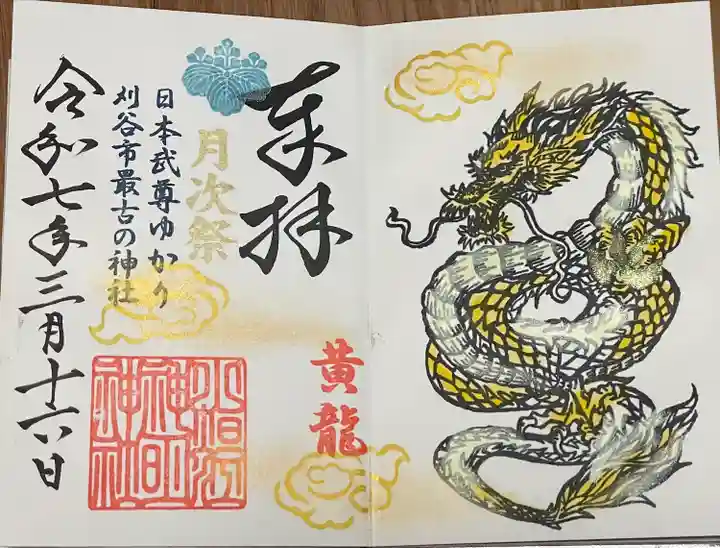 奉拝
黄龍
月次祭
日本武尊ゆかり
刈谷市最古の神社
令和七年三月十六日